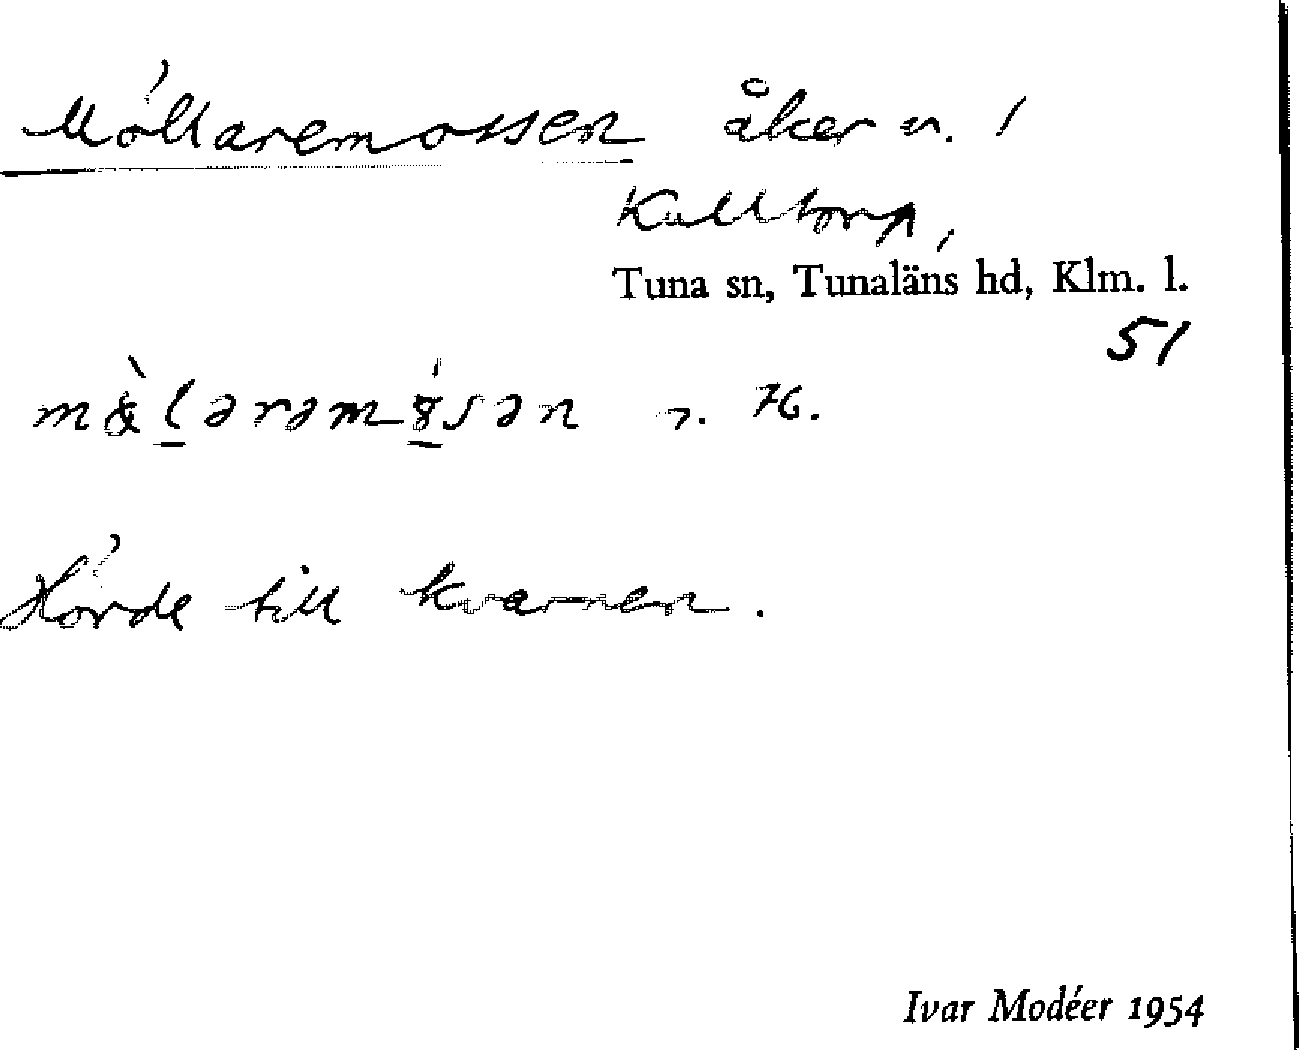 Möllaremossen åker n. 1
Kulltorp,
Tuna sn, Tunaläns hd, Klm. l.
51
n. H.
Hörde till kvarnen.
Ivar Modéer 1954